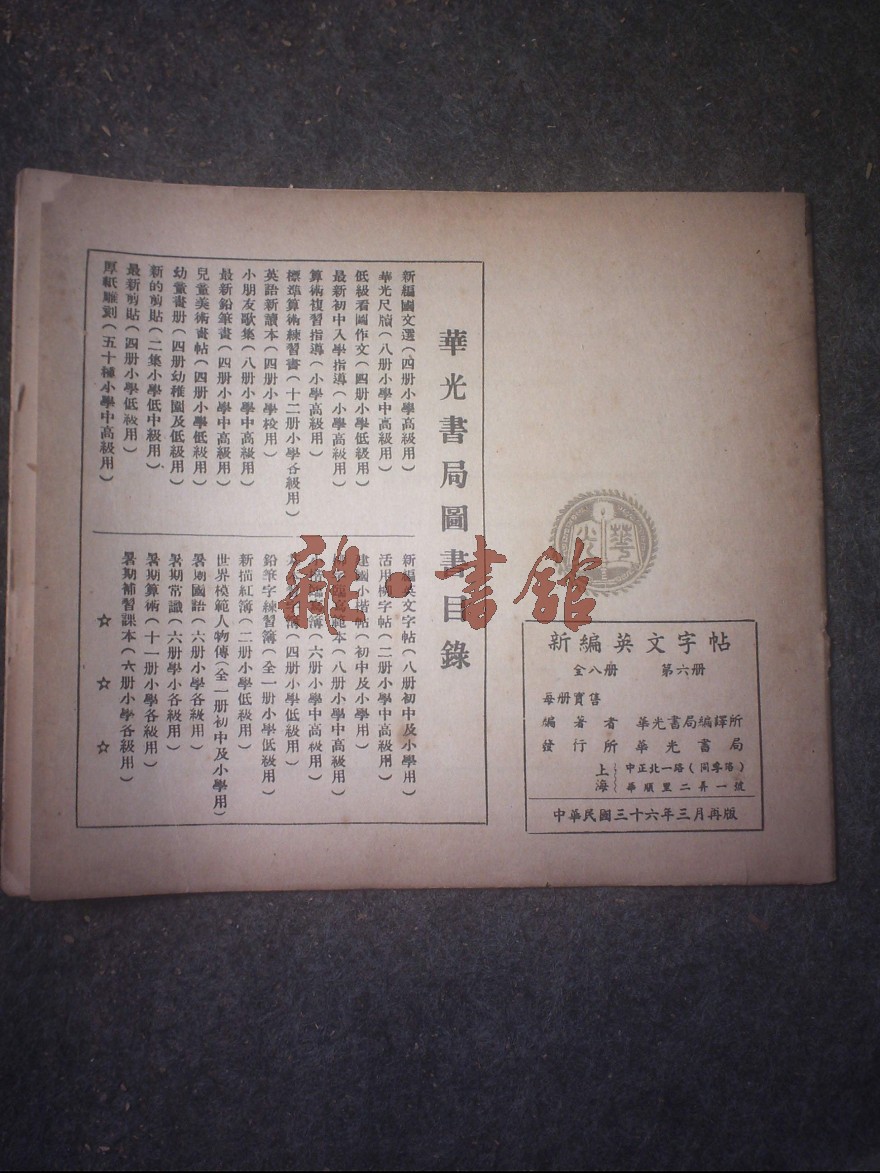 華光書局圖書目錄
新編國文選（四册小學高級用）
華光尺牘（八册小學中高級用）
低級看圖作文（四册小學低級用）
最新初中入學指導（小學高級用）
算術複習指導（小學高級用）
標準算術練習書（十二册小學各級用）
英語新讀本（四册小學校用）
小朋友歌集（八册小學中高級用）
最新鉛筆畫（四册小學中高級用）
兒童美術畫帖（四册小學低級用）
幼童畫册（四册幼稚園及低級用）
新的剪貼（二集小學低中級用）
最新剪貼（四册小學低級用）
厚紙雕刻（五十種小學中高級用）
新編英文字帖（八册初中及小學用）
活用 字帖（二册小學中高級用）
建國小楷帖（初中及小學用）
範本（八册小學中高級用）
（六册小學中高級用）
簿（四册小學低級用）
鉛筆字練習簿（全一册小學低級用）
新描紅簿（二册小學低級用）
世界模範人物傳（全一册初中及小學用）
暑期國語（六册小學各級用）
暑期常識（六册學小各級用）
暑期算術（十一册小學各級用）
暑期補習課本（六册小學各級用）
☆ ☆ ☆
光 華
新編英文字帖
全八册 第六册
每册實售
編著者 華光書局編譯所
發行所 華光書局
上海 中正北一路（同孚路）
華順里二弄一號
中華民國三十六年三月再版
雜·書館